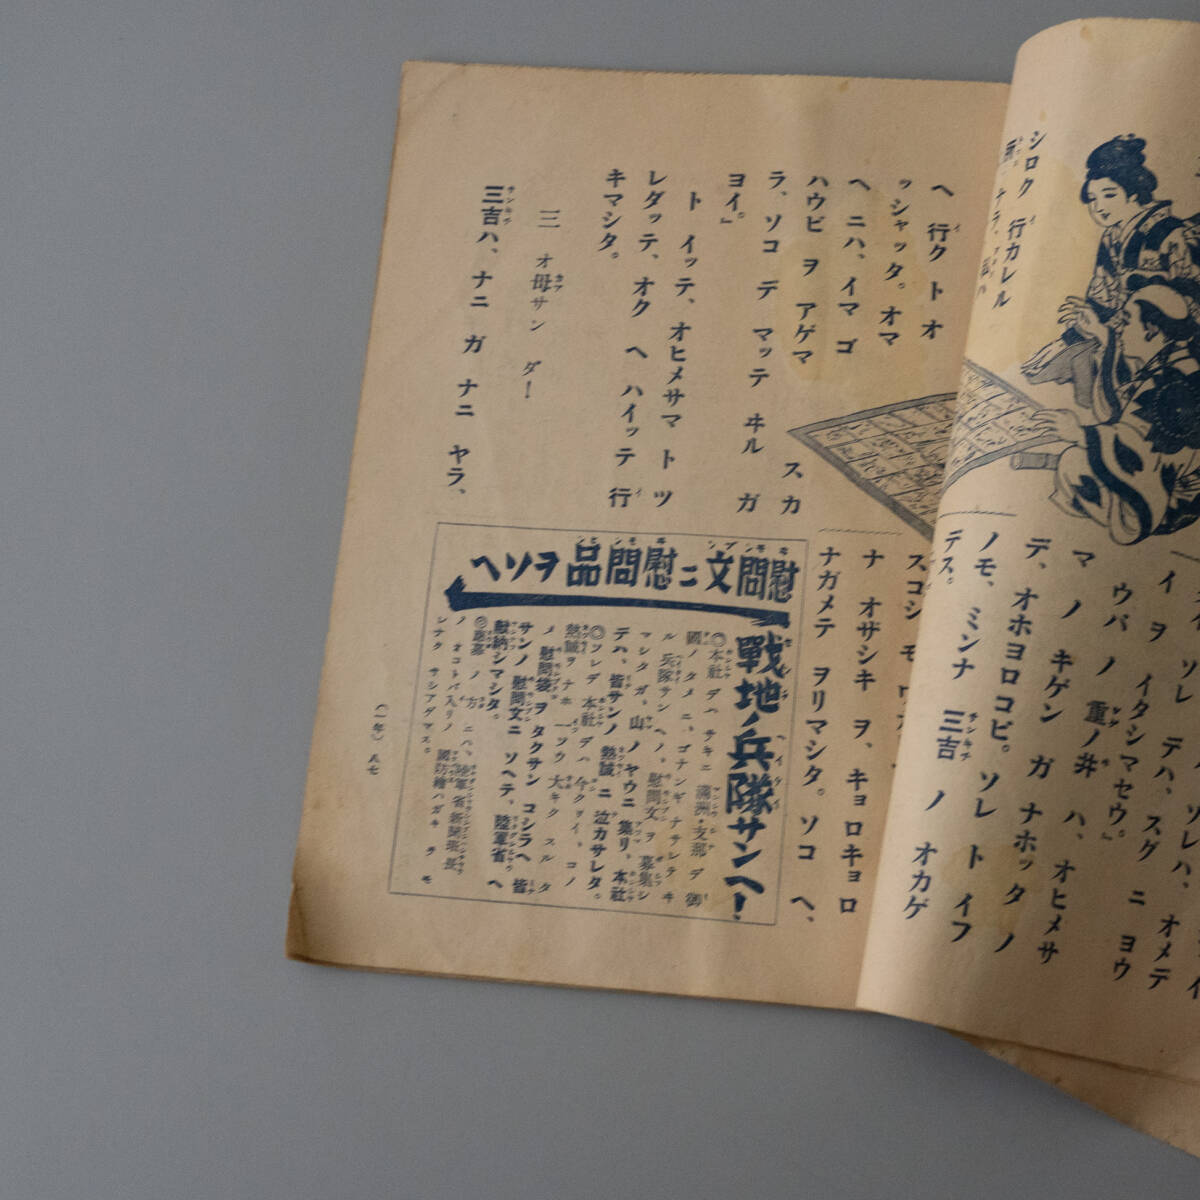 シロク 行カレル
マ ノ キゲン ガ ナホッタ ノ
デ、オホヨロコビ。ソレ ト イフ
ノモ、ミンナ 三吉 ノ オカゲ
デス。
ナ オザシキ ヲ、キョロキョロ
ナガメテ ヲリマシタ。ソコ ヘ、
ヘ 行ク ト オ
ッシャッタ。オマ
ヘ ニハ、イマ ゴ
ハウビ ヲ アゲマ
スカ
ラ、ソコ デ マッテ ヰル ガ
ヨイ。」
ト イッテ、オヒメサマ ト ツ
レダッテ、オク ヘ ハイッテ 行
キマシタ。
三 オ母サン ダ!
三吉ハ、ナニ ガ ナニ ヤラ、
慰問文ニ慰問品ヲソヘ
戰地ノ兵隊サンヘ!
◎本社 デハ サキニ 滿洲・支那 デ 御
國ノ タメニ、ゴナンギ ナサレテヰ
ル 兵隊サン ヘノ、慰問文 ヲ 募集シ
マシタガ、山 ノ ヤウニ 集リ、本社
デハ、皆サンノ 熱誠 ニ 泣カサレタ。
◎ソレデ 本社 デハ 今クヮイ、コノ
熱誠ヲ ナホ 一ソウ 大キク スルタ
メ 慰問袋 ヲ タクサン コシラヘ 皆
サンノ 慰問文ニ ソヘテ、陸軍省 ヘ
獻納シマシタ。
ノ 方 ニハ、陸軍省新聞班長
ノ オコトバ入リノ 國防繪ハガキ ヲ モ
レナク サシアゲマス。
(一年) 八七